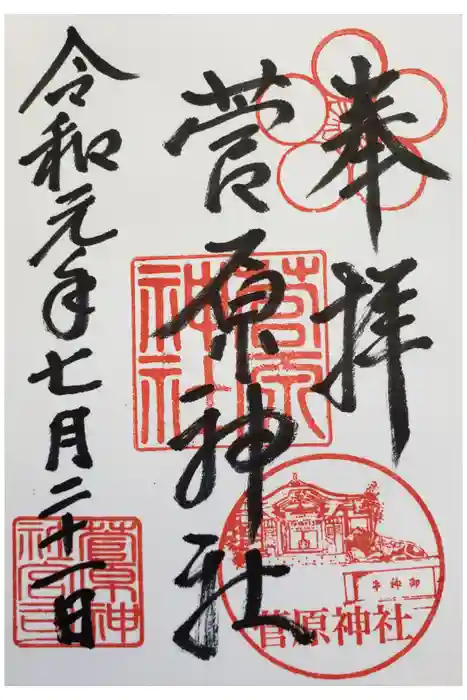 奉拝
菅原神社
菅原神社
令和元年七月二十一日
菅原神社宮司
御神牛
菅原神社